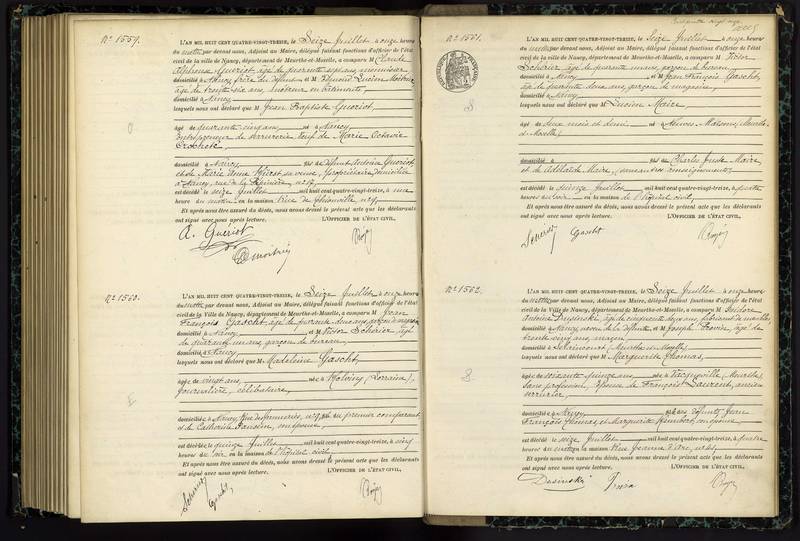 No 1559.
L'AN MIL HUIT CENT QUATRE-VINGT-TREIZE, le Seize Juillet à onze heures
du matin par devant nous, Adjoint au Maire, délégué faisant fonctions d'officier de l'état
civil de la ville de Nancy, département de Meurthe-et-Moselle, a comparu M Claude
Alphonse Gueriot, âgé de quarante sept ans, menuisier
domicilié à Nancy, frère du défunt et M Edmond Lucien
âgé de trente six ans,
domicilié à Nancy
lesquels nous ont déclaré que M Jean Baptiste Gueriot,
âgé de quarante cinq ans, né à Nancy
Entrepreneur de serrurerie Veuf de Marie Octavie
domicilié à Nancy fils de défunt Antoine Gueriot
et de Marie Anne sa veuve, propriétaire domiciliée
à Nancy, rue de la Pépinière, no 17,
est décédé le seize Juillet mil huit cent quatre-vingt-treize, à une
heure du matin en la maison Rue de Thionville no 9,
Et après nous être assuré du décès, nous avons dressé le présent acte que les déclarants
ont signé avec nous après lecture. L'OFFICIER DE L'ÉTAT CIVIL,
A. Gueriot
No 1560.
L'AN MIL HUIT CENT QUATRE-VINGT-TREIZE, le Seize Juillet à onze heures
du matin par devant nous, Adjoint au Maire, délégué faisant fonctions d'officier de l'état
civil de la Ville de Nancy, département de Meurthe-et-Moselle, a comparu M Jean
François Gascht, âgé de quarante deux ans, garçon de magasin
domicilié à Nancy et M Victor Scherier, âgé
de quarante un ans, garçon de bureau,
domicilié à Nancy
lesquels nous ont déclaré que M Madeleine Gascht,
âgée de vingt ans, née à Holving (Lorraine),
journalière, célibataire,
domiciliée à Nancy, Rue des fille du premier comparant
et de Catherine son épouse,
est décédée le quinze Juillet mil huit cent quatre-vingt-treize, à cinq
heures du soir en la maison de l'hôpital civil,
Et après nous être assuré du décès, nous avons dressé le présent acte que les déclarants
ont signé avec nous après lecture. L'OFFICIER DE L'ÉTAT CIVIL,
Gascht
No 1561.
L'AN MIL HUIT CENT QUATRE-VINGT-TREIZE, le Seize Juillet à onze heures
du matin par devant nous, Adjoint au Maire, délégué faisant fonctions d'officier de l'état
civil de la ville de Nancy, département de Meurthe-et-Moselle, a comparu M Victor
Scherier âgé de quarante un ans, garçon de bureau
domicilié à Nancy et M Jean François Gascht,
âgé de quarante deux ans, garçon de magasin,
domicilié à Nancy
lesquels nous ont déclaré que M Lucien Maire
âgé de deux mois et demi né à Neuves Maisons, (Meurthe-
et-Moselle)
domicilié à fils de Charles Juste Maire
et de Adélaïde Maire, (sans autres renseignements)
est décédé le quinze Juillet mil huit cent quatre-vingt-treize, à quatre
heures du soir en la maison de l'hôpital civil,
Et après nous être assuré du décès, nous avons dressé le présent acte que les déclarants
ont signé avec nous après lecture. L'OFFICIER DE L'ÉTAT CIVIL,
Gascht
No 1562.
L'AN MIL HUIT CENT QUATRE-VINGT-TREIZE, le Seize Juillet à onze heures
du matin par devant nous, Adjoint au Maire, délégué faisant fonctions d'officier de l'état
civil de la Ville de Nancy, département de Meurthe-et-Moselle, a comparu M Isidore
Antoine âgé de cinquante ans, fabricant de
domicilié à Nancy, neveu de la défunte, et M Joseph âgé de
trente cinq ans, maçon
domicilié à (Meurthe et Moselle)
lesquels nous ont déclaré que M Marguerite Thomas,
âgée de soixante quinze ans, née à Vacqueville (Meurthe)
sans profession, Epouse de François Laurent, ancien
serrurier,
domiciliée à Nancy, fille des défunts Jean
François Thomas, et Marguerite son épouse
est décédée le seize Juillet mil huit cent quatre-vingt-treize, à quatre
heures du matin en la maison Rue Jeanne d'Arc,
Et après nous être assuré du décès, nous avons dressé le présent acte que les déclarants
ont signé avec nous après lecture. L'OFFICIER DE L'ÉTAT CIVIL,